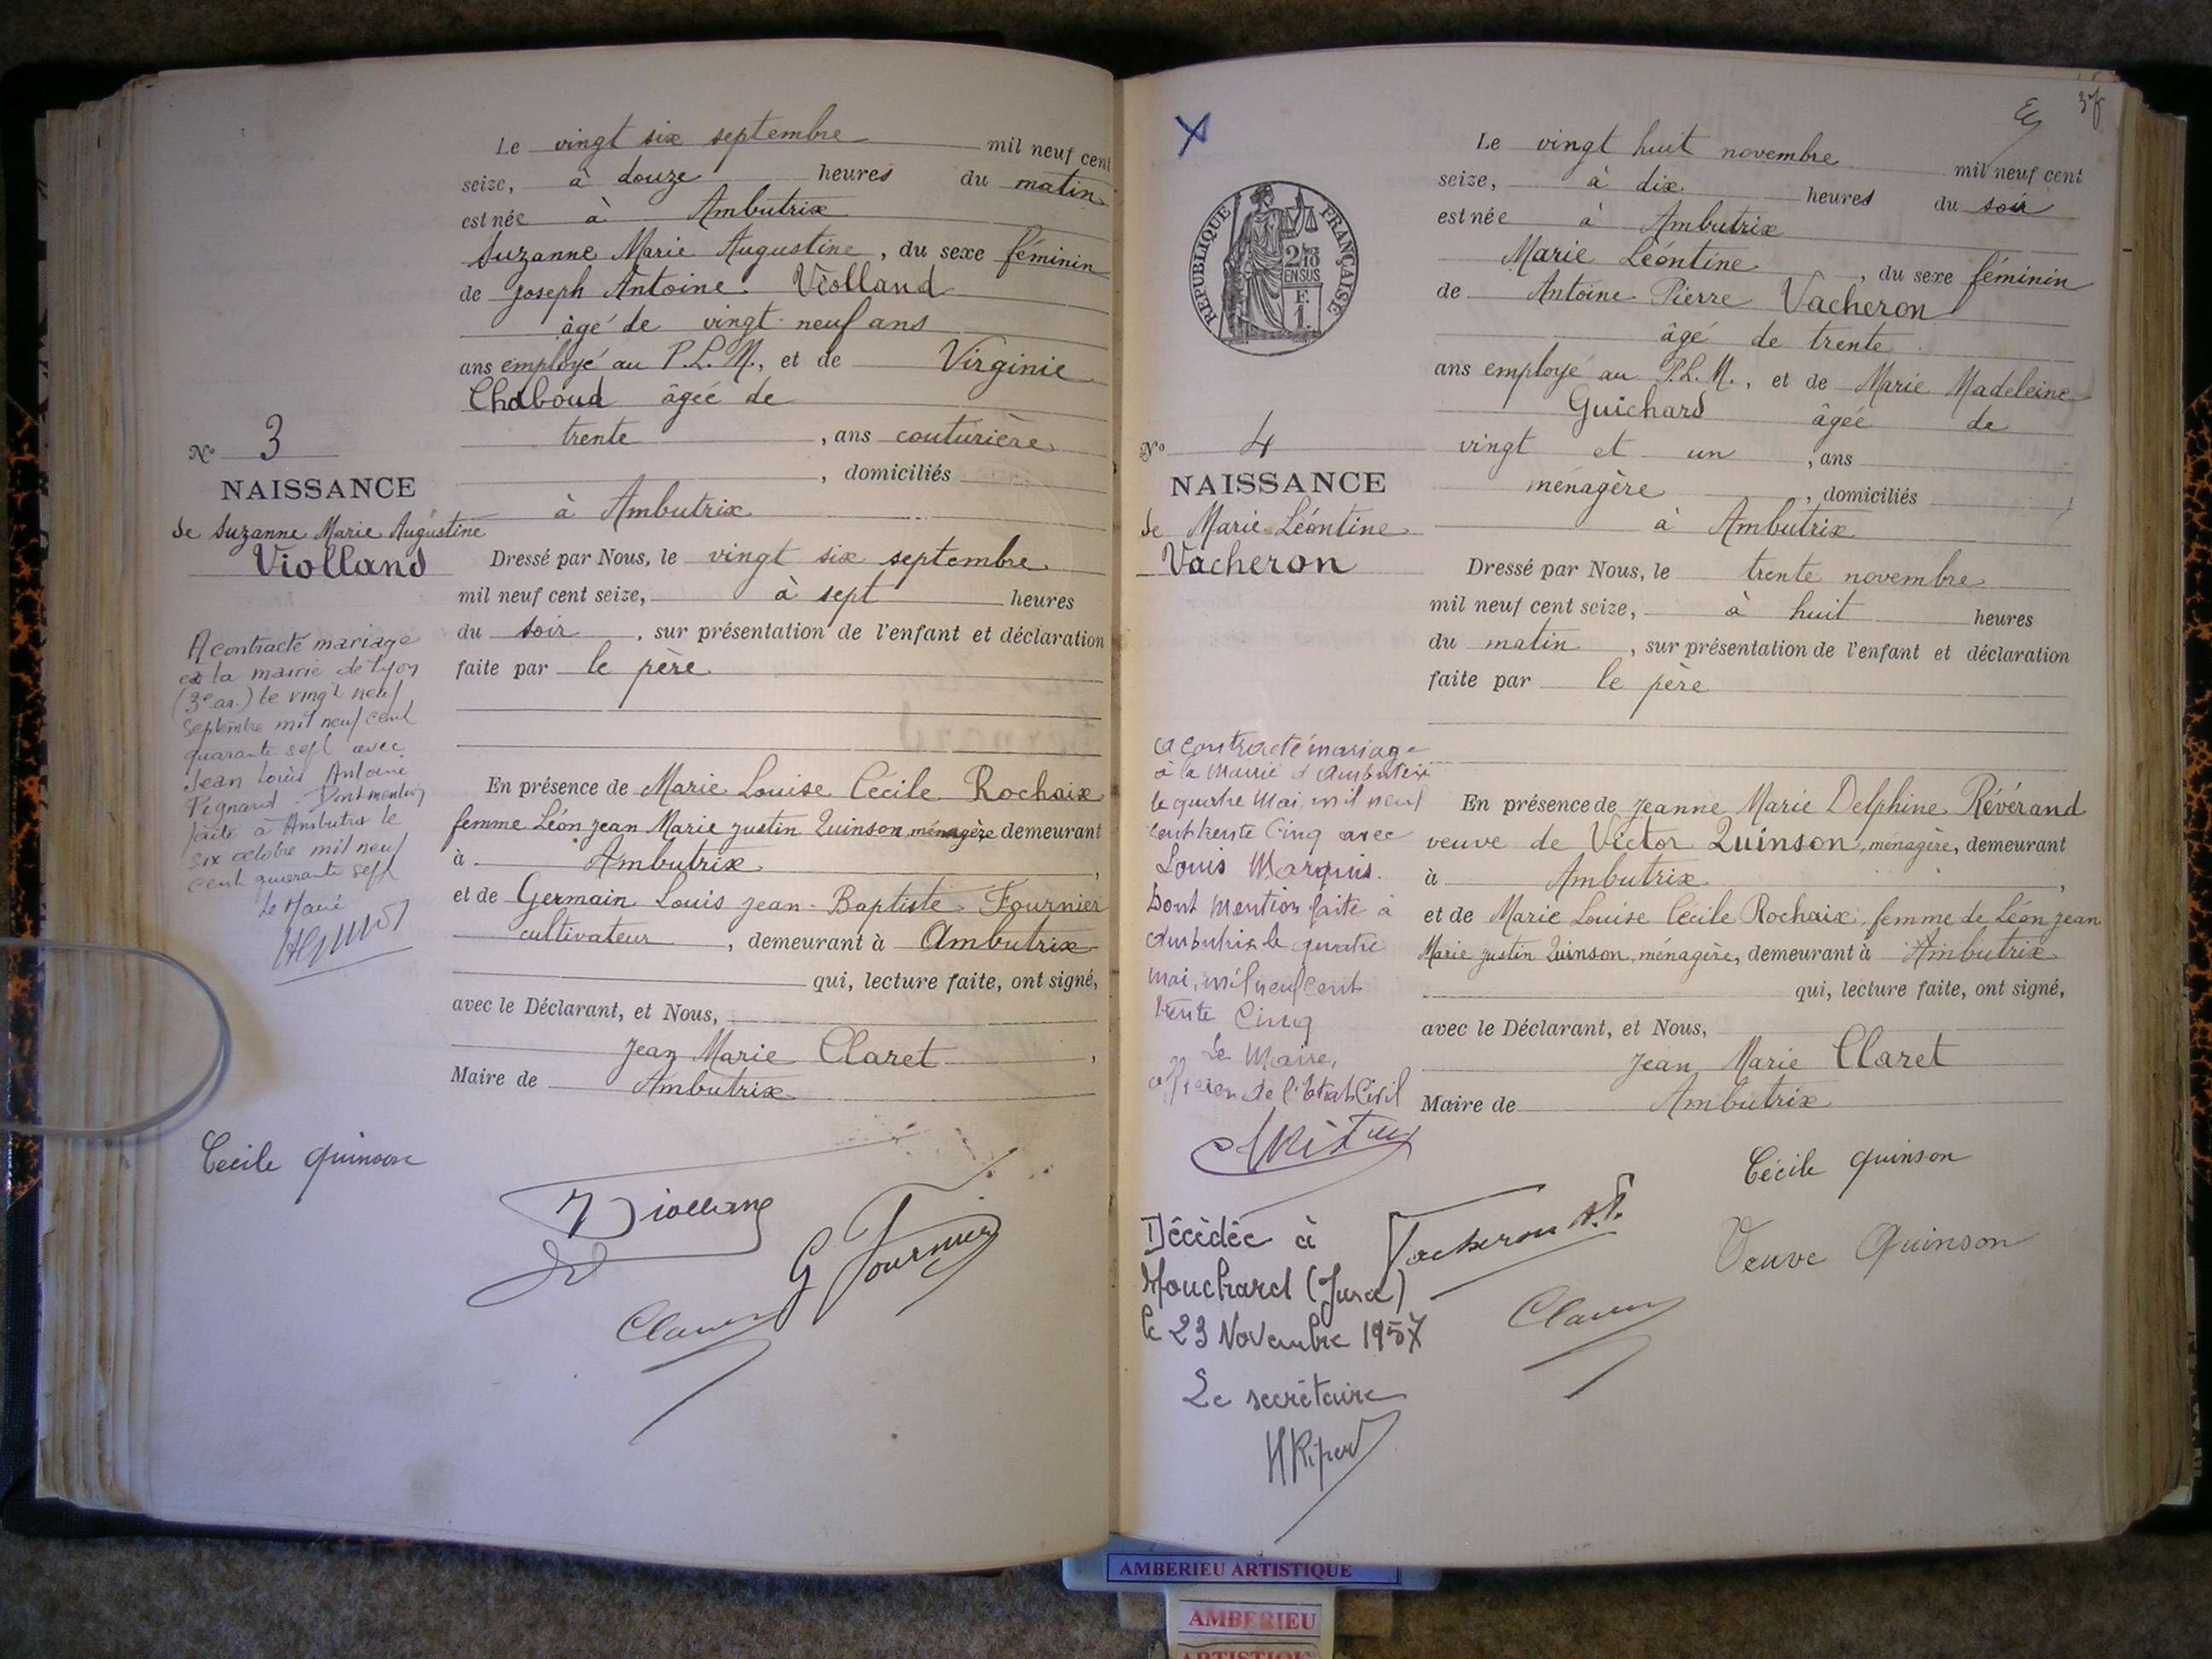 Le vingt six septembre mil neuf cent
seize, à douze heures du matin
est née à Ambutrix
Suzanne Marie Augustine, du sexe féminin
de Joseph Antoine Violland
âgé de vingt-neuf ans
ans employé au P.L.M., et de Virginie
Chaboud âgée de
trente, ans couturière
, domiciliés
à Ambutrix
Nº 3
NAISSANCE
de Suzanne Marie Augustine
Violland
Dressé par Nous, le vingt six septembre
mil neuf cent seize, à sept heures
du soir, sur présentation de l'enfant et déclaration
faite par le père
A contracté mariage
à la mairie de Lyon
(3e ar.) le vingt neuf
Septembre mil neuf cent
quarante sept avec
Jean Louis Antoine
Pignard - Dont mention
faite à Ambutrix le
six octobre mil neuf
cent quarante sept
Le Maire
En présence de Marie Louise Cécile Rochaix
femme Léon Jean Marie Justin Quinson ménagère demeurant
à Ambutrix,
et de Germain Louis Jean-Baptiste Fournier
cultivateur, demeurant à Ambutrix
qui, lecture faite, ont signé,
avec le Déclarant, et Nous,
Jean Marie Claret,
Maire de Ambutrix
Cécile Quinson
Violland
G Fournier
Claret
37
Le vingt huit novembre mil neuf cent
seize, à dix heures du soir
est née à Ambutrix
Marie Léontine, du sexe féminin
de Antoine Pierre Vacheron
âgé de trente
ans employé au P.L.M., et de Marie Madeleine
Guichard âgée de
vingt et un, ans
ménagère, domiciliés
à Ambutrix
REPUBLIQUE FRANÇAISE
2/10
EN SUS
F.
1.
Nº 4
NAISSANCE
de Marie Léontine
Vacheron
Dressé par Nous, le trente novembre
mil neuf cent seize, à huit heures
du matin, sur présentation de l'enfant et déclaration
faite par le père
a contracté mariage
à la Mairie d'Ambutrix
le quatre Mai, mil neuf
cent trente Cinq avec
Louis Marquis.
Dont Mention faite à
Ambutrix le quatre
mai, mil neuf cent
trente Cinq
Le Maire,
officier de l'Etat Civil
En présence de Jeanne Marie Delphine Révérand
veuve de Victor Quinson, ménagère, demeurant
à Ambutrix,
et de Marie Louise Cécile Rochaix, femme de Léon Jean
Marie Justin Quinson, ménagère, demeurant à Ambutrix
qui, lecture faite, ont signé,
avec le Déclarant, et Nous,
Jean Marie Claret
Maire de Ambutrix
Cécile Quinson
Vacheron A.P.
Veuve Quinson
Claret
Décédée à
Mouchard (Jura)
le 23 Novembre 1957
Le secrétaire
AMBERIEU ARTISTIQUE
AMBERIEU
ARTISTIQUE